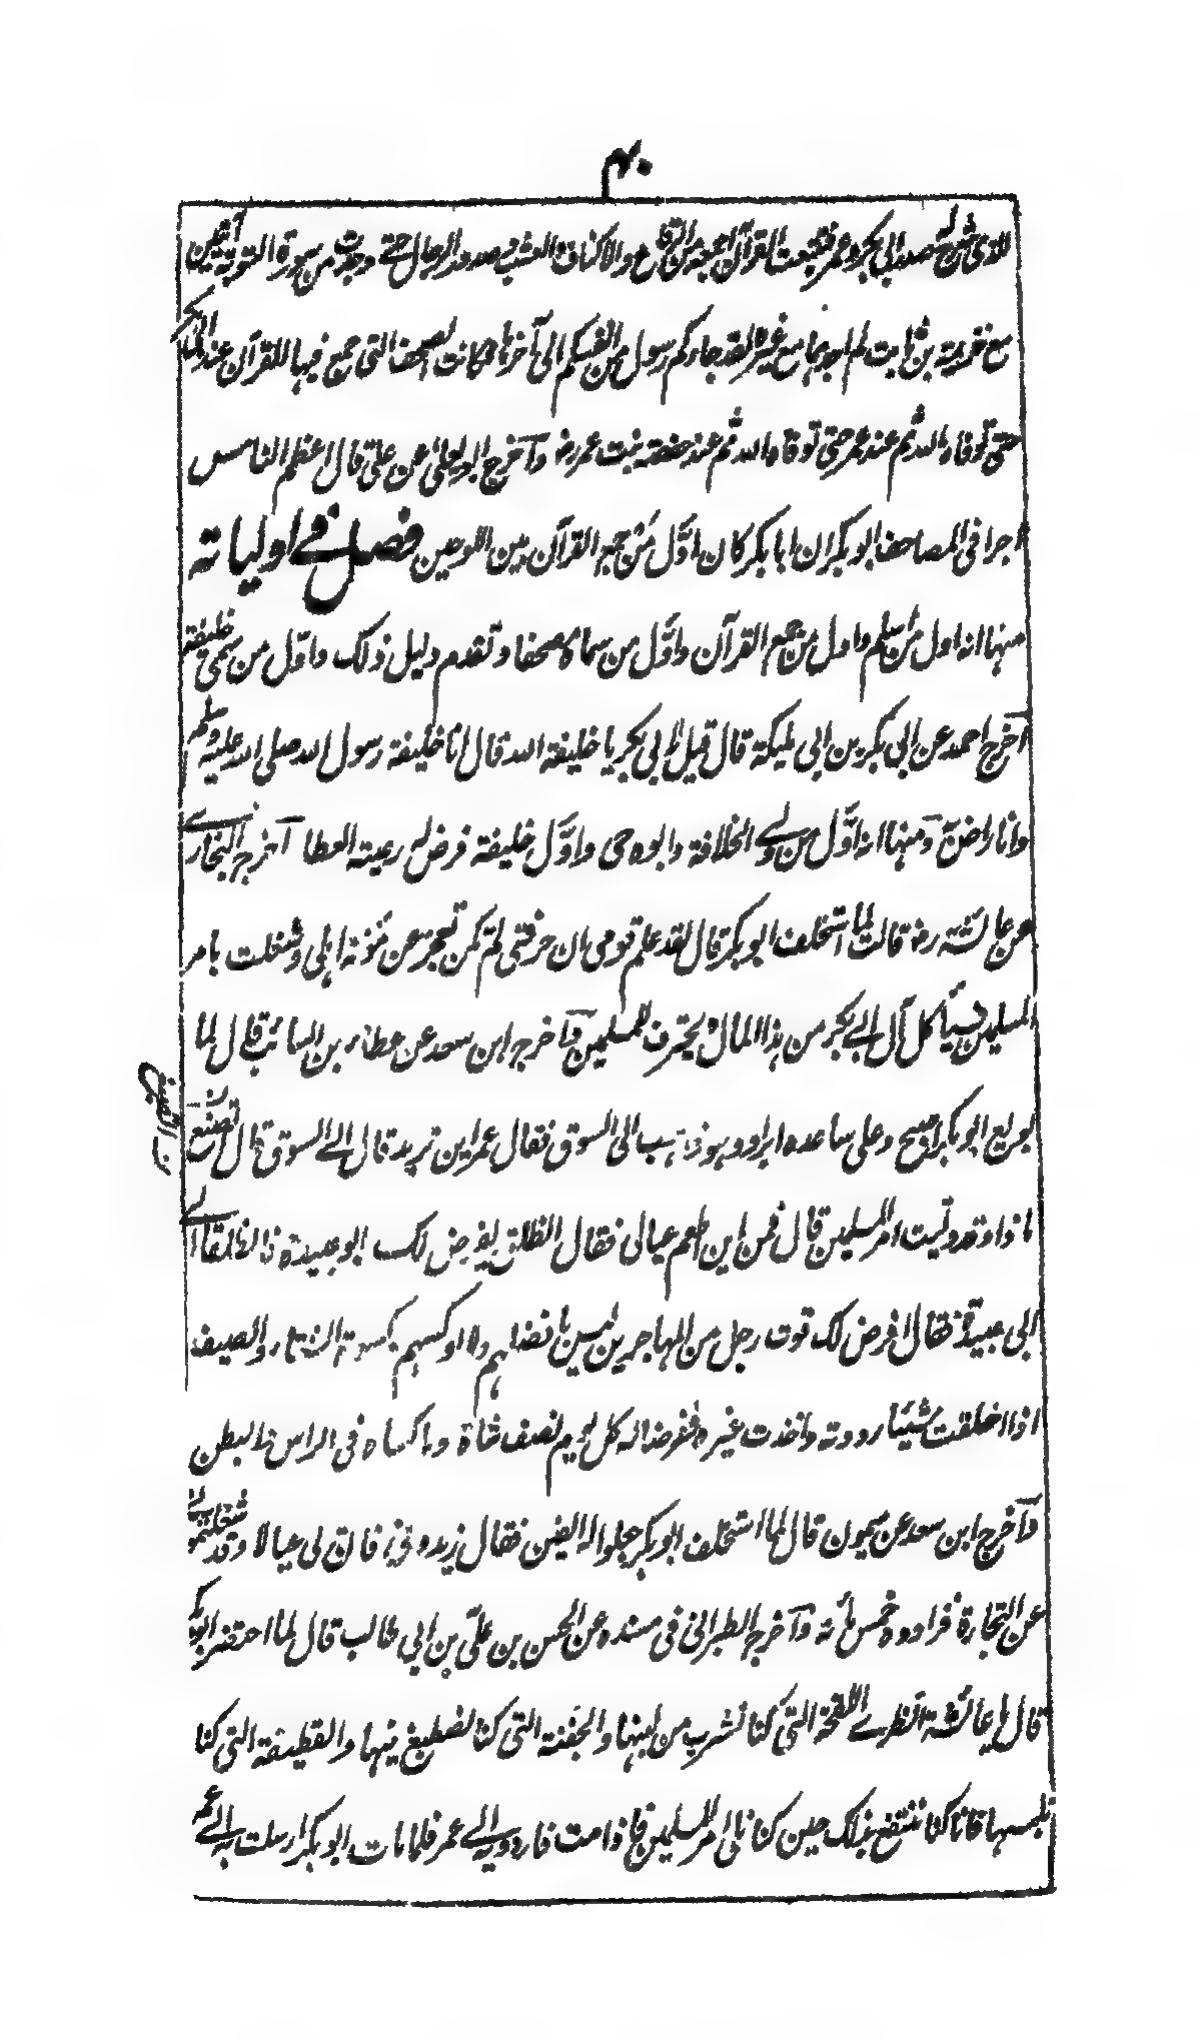 ۴۰
للذی شرح له صدر ابی بکر و عمر فتتبعت القرآن اجمعه من الرقاع والاکتاف العسب و صدور الرجال حتی وجدت من سورة التوبة آیتین
مع خزیمة بن ثابت لم اجدهما مع غیره لقد جاءکم رسول من انفسکم الی آخرها فکانت الصحف التی جمع فیها القرآن عند ابی بکر
حتی توفاه الله ثم عند عمر حتی توفاه الله ثم عند حفصة بنت عمر رض وآخرج ابو یعلی عن علی قال اعظم الناس
اجرا فی المصاحف ابو بکر ان ابا بکر کان اوّل من جمع القرآن بین اللوحین فصل فے اولیاته
منها انه اول من اسلم واول من جمع القرآن واوّل من سماه مصحفا وتقدم دلیل ذلک واوّل من سمی خلیفة
آخرج احمد عن ابی بکر بن ابی ملیکة قال قیل لابی بکر یا خلیفة الله قال انا خلیفة رسول الله صلی الله علیه وسلم
وانا راض به ومنها انه اوّل من ولے الخلافة وابوه حی واوّل خلیفة فرض له رعیته العطا آخرج البخارے
عن عائشة رض قالت لما استخلف ابو بکر قال لقد علم قومی ان حرفتی لم تکن تعجز عن مؤنة اهلی وشغلت بامر
المسلمین فسیاکل آل ابے بکر من هذا المال ویحترف للمسلمین وآخرج ابن سعد عن عطاء بن السائب قال لما
بویع ابو بکر اصبح وعلی ساعده ابراد وهو ذاهب الی السوق فقال عمر این ترید قال الے السوق قال تصنع
ماذا وقد ولیت امر المسلمین قال فمن این اطعم عیالی فقال انطلق یفرض لک ابو عبیدة فانطلقا الے
ابی عبیدة فقال افرض لک قوت رجل من المهاجرین لیس بافضلهم ولا اوکسهم کسوة الشتاء والصیف
اذا اخلقت شیئا رددته واخذت غیره ففرضا له کل یوم نصف شاة وما کساه فی الراس والبطن
وآخرج ابن سعد عن میمون قال لما استخلف ابو بکر جعلوا له الفین فقال زیدونی فان لی عیالا وقد شغلتمونی
عن التجارة فزادوه خمس مائة وآخرج الطبرانی فی مسنده عن الحسن بن علی بن ابی طالب قال لما احتضر ابو بکر
قال یا عائشة انظرے اللقحة التی کنا نشرب من لبنها والجفنة التی کنا نصطبغ فیها والقطیفة التی کنا
نلبسها فانا کنا ننتفع بذلک حین کنا نلی امر المسلمین فاذا مت فاردیه الے عمر فلما مات ابو بکر ارسلت به الے عمر